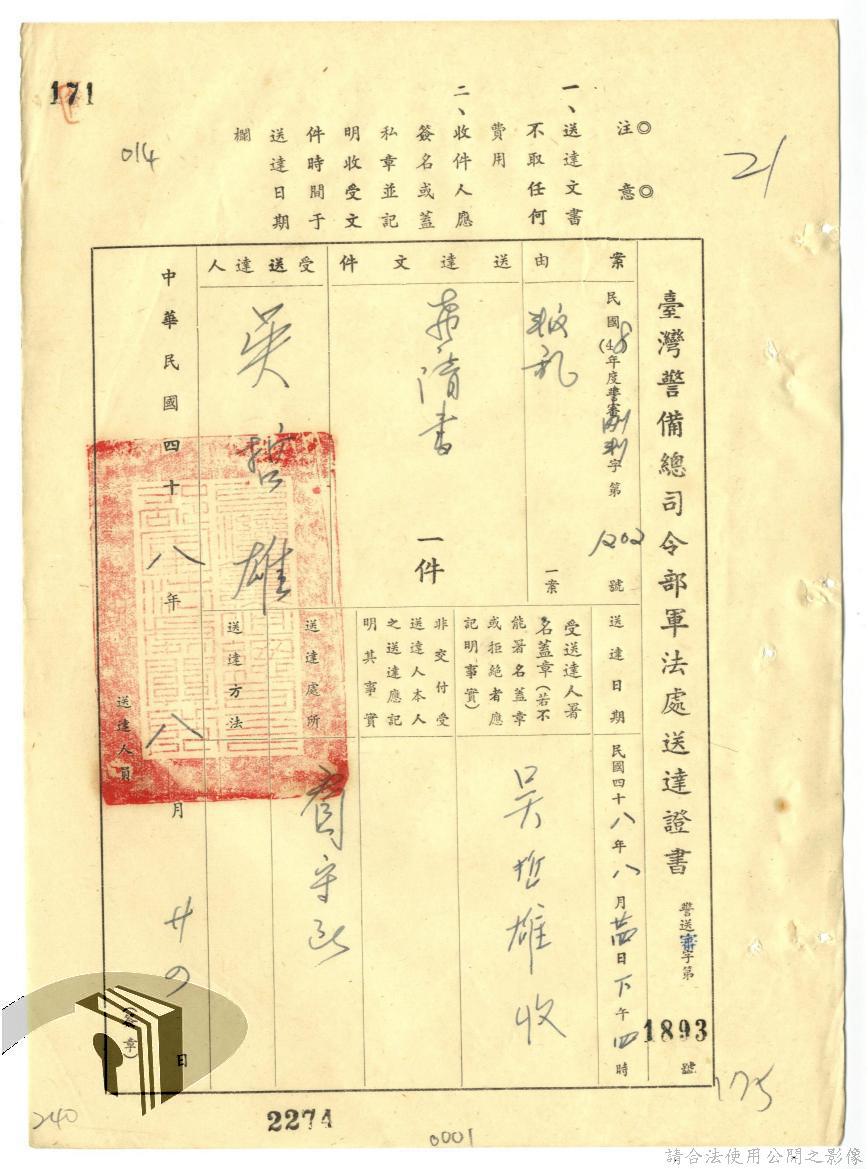 171
014
21
◎注意◎
一、送達文書
不取任何
費用
二、收件人應
簽名或蓋
私章並記
明收受文
件時間于
送達日期
欄
臺灣警備總司令部軍法處送達證書
警送審字第1893號
案由
民國(48年度警審 字第1202號
叛亂
一案
送達文件
聲請書
一件
受送達人
吳哲雄
送達日期
民國四十八年八月廿四日下午四時
受送達人署
名蓋章(若不
能署名蓋章
或拒絕者應
記明事實)
吳哲雄收
非交付受
送達人本人
之送達應記
明其事實
送達處所
看守所
送達方法
中華民國四十八年八月廿四日
送達人員
(簽章)
175
240
2274
0001
請合法使用公開之影像